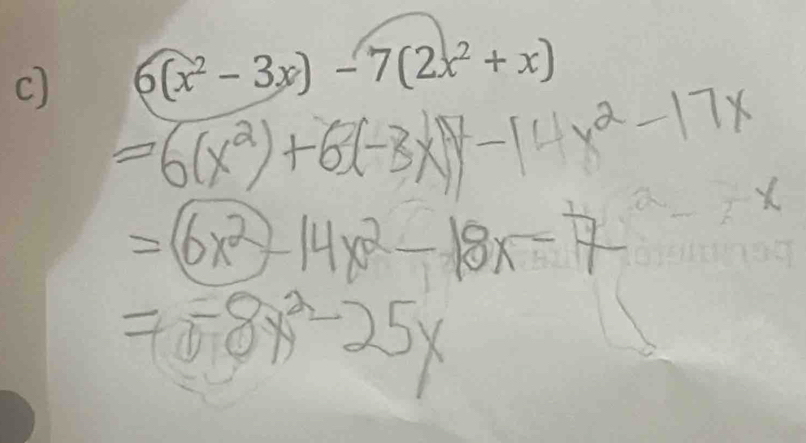 c) 6(x² - 3x) - 7(2x² + x)
= 6(x²) + 6(-3x) - 14x² - 17x
= 6x² - 14x² - 18x - 7
= -8x² - 25x